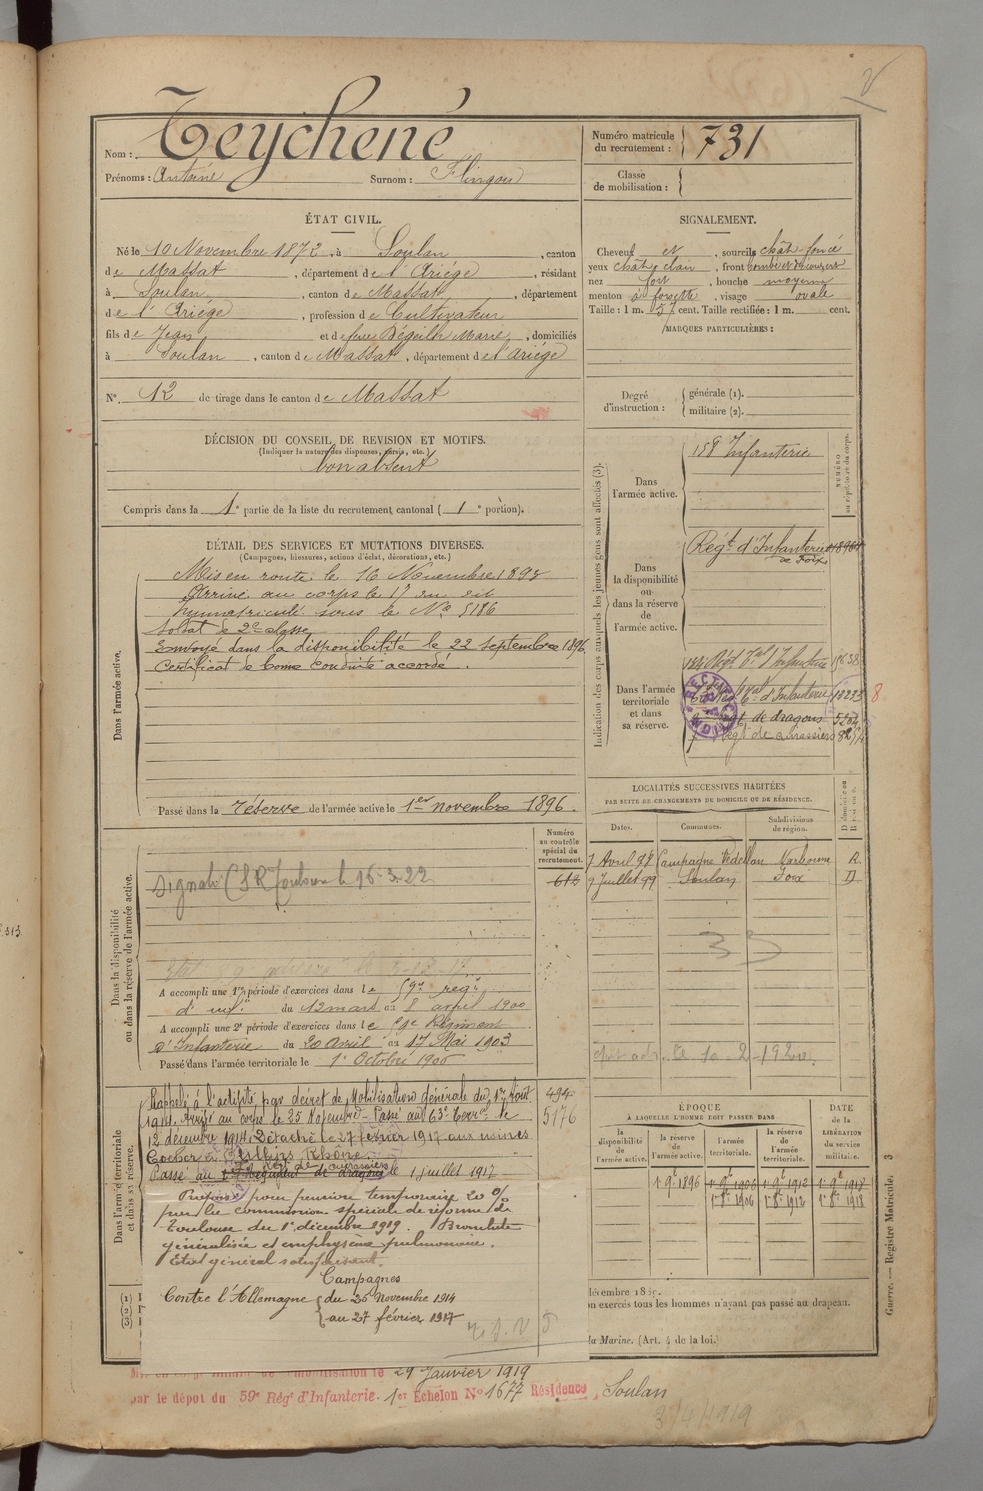 Teychené
Nom :
Prénoms : Antoine Surnom : Flingou
Numéro matricule
du recrutement : 731
Classe
de mobilisation :
ÉTAT CIVIL.
Né le 10 Novembre 1872, à Soulan, canton
de Massat, département de l'Ariége, résidant
à Soulan, canton de Massat, département
de l'Ariége, profession de Cultivateur
fils de Jean et de feue Bégeilh Marie, domiciliés
à Soulan, canton de Massat, département de l'Ariége
N° 12 de tirage dans le canton de Massat
SIGNALEMENT.
Cheveux et, sourcils chât-foncé
yeux chât. clair, front
nez fort, bouche moyenne
menton à fossette, visage ovale
Taille : 1 m. 57 cent. Taille rectifiée : 1 m. cent.
MARQUES PARTICULIÈRES :
Degré
d'instruction :
générale (1).
militaire (2).
DÉCISION DU CONSEIL DE REVISION ET MOTIFS.
(Indiquer la nature des dispenses, sursis, etc.)
bon absent
Compris dans la 1e partie de la liste du recrutement cantonal (1e portion).
DÉTAIL DES SERVICES ET MUTATIONS DIVERSES.
(Campagnes, blessures, actions d'éclat, décorations, etc.)
Dans l'armée active.
Mis en route le 16 Novembre 1893
Arrivé au corps le 17 du dit
Immatriculé sous le No 5186
Soldat de 2e classe
Envoyé dans la disponibilité le 22 septembre 1896
Certificat de bonne conduite accordé.
Passé dans la réserve de l'armée active le 1er novembre 1896.
Indication des corps auxquels les jeunes gens sont affectés (3).
NUMÉRO
au répertoire du corps.
Dans
l'armée active.
158 Infanterie
Dans
la disponibilité
ou
dans la réserve
de
l'armée active.
Régt d'Infanterie
de Foix
Dans l'armée
territoriale
et dans
sa réserve.
Régt Tal d'Infanterie
d'Infanterie 18223
8
de dragons
Régt de cuirassiers
LOCALITÉS SUCCESSIVES HABITÉES
PAR SUITE DE CHANGEMENTS DE DOMICILE OU DE RÉSIDENCE.
Dates. Communes. Subdivisions de région.
7 Avril 98 Campagne Védellan Narbonne R.
9 Juillet 99 Soulan Foix D
33
Dans la disponibilité
ou dans la réserve de l'armée active.
Numéro
au contrôle
spécial du
recrutement.
613
16-3-22
A accompli une 1re période d'exercices dans le 59e régt
d'infie du 12 mars au 8 avril 1900
A accompli une 2e période d'exercices dans le 59e Régiment
d'Infanterie du 20 Avril au 17 Mai 1903
Passé dans l'armée territoriale le 1er Octobre 1906
Dans l'armée territoriale
et dans sa réserve.
Rappelé à l'activité par décret de Mobilisation générale du 1er Août
1914. Arrivé au corps le 25 Novembre - Passé au 63e Terral le
12 décembre 1914. Détaché le 27 février 1917 aux usines
Cocher à Oullins Rhône.
de cuirassiers
Passé au Régiment de dragons le 1 juillet 1917
494
5176
Proposé pour pension temporaire 20 %
par la commission spéciale de réforme de
Toulouse du 1er décembre 1919. Bronchite
généralisée et emphysème pulmonaire.
Etat général satisfaisant.
Campagnes
Contre l'Allemagne du 25 Novembre 1914
au 27 février 1917
ÉPOQUE
À LAQUELLE L'HOMME DOIT PASSER DANS
la disponibilité de l'armée active.
la réserve de l'armée active.
l'armée territoriale.
la réserve de l'armée territoriale.
DATE
de la
LIBÉRATION
du service
militaire.
1er 9e 1896 1er 9e 1906 1er 9e 1912 1er 9e 1918
1er 8e 1906 1er 8e 1912 1er 8e 1918
n exercés tous les hommes n'ayant pas passé au drapeau.
la Marine. (Art. 4 de la loi.)
(1)
(2)
(3)
Guerre. — Registre Matricule. 3
le 29 Janvier 1919
par le dépot du 59e Régt d'Infanterie. 1er Echelon No 1677 Résidence, Soulan